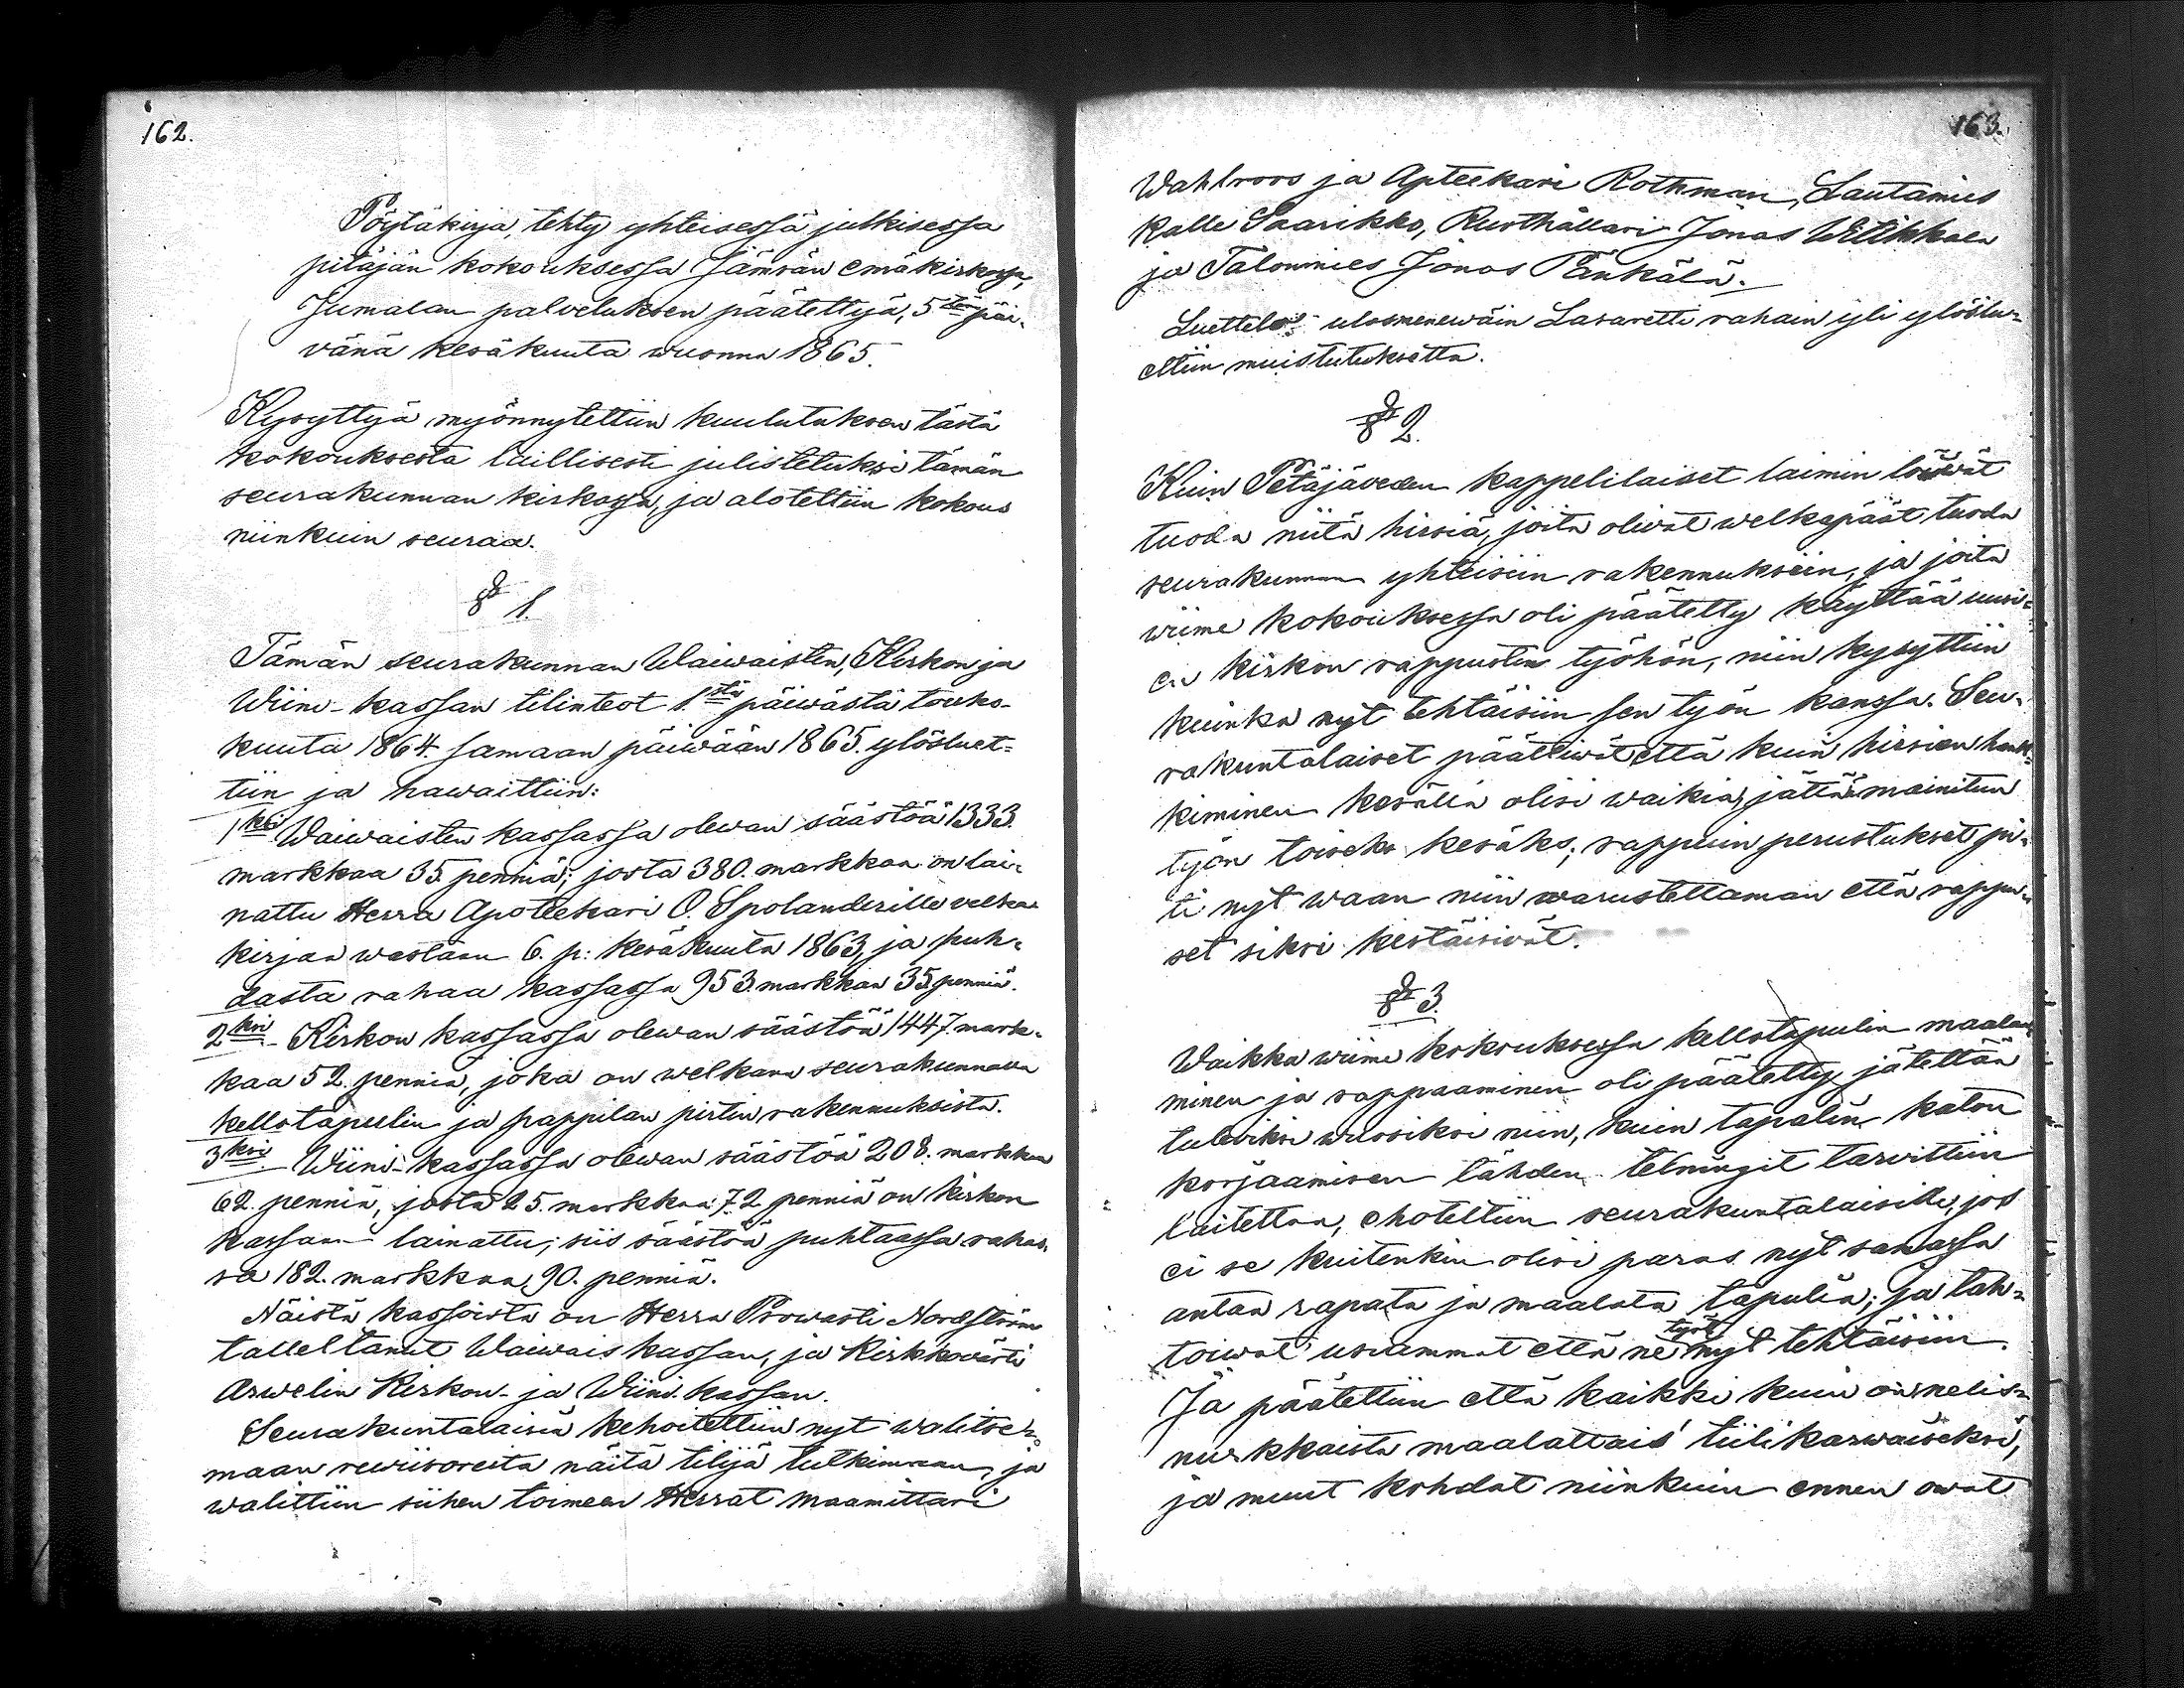 162.
Pöytäkirja, tehty yhteisessä julkisessa
pitäjän kokouksessa Jämsän emäkirkossa,
Jumalan palveluksen päätettyä, 5tenä päi-
vänä kesäkuuta wuonna 1865.
Kysyttyä myönnytettiin kuulutuksen tästä
kokouksesta laillisesti julistetuksi tämän
seurakunnan kirkossa, ja alotettiin kokous
niinkuin seuraa.
§ 1.
Tämän seurakunnan Waiwaisten, Kirkon ja
Wiini-kassan tilinteot 1stä päiwästä touko-
kuuta 1864. samaan päiwään 1865. ylösluet-
tiin ja hawaittiin:
1ksi Waiwaisten kassassa olewan säästöä 1333.
markkaa 35. penniä; josta 380. markkaa on lai-
nattu Herra Apotekari O. Spolanderille velka-
kirjaa wastaan 6. p: kesäkuuta 1863, ja puh-
dasta rahaa kassassa 953. markkaa 35. penniä.
2ksi Kirkon kassassa olewan säästöä 1447. mark-
kaa 52. penniä, joka on welkana seurakunnalla
kellotapulin ja pappilan pirtin rakennuksista.
3ksi Wiini-kassassa olewan säästöä 208. markkaa
62. penniä, josta 25. markkaa 72 penniä on kirkon
kassaan lainattu; siis säästöä puhtaassa rahas-
sa 182. markkaa 90. penniä.
Näistä kassoista on Herra Prowasti Nordström
talleltanut Waiwaiskassan, ja Kirkkovärti
Arwelin Kirkon- ja Wiini-kassan.
Seurakuntalaisia kehoitettiin nyt walitse-
maan rewiisoreita näitä tilijä tutkimaan, ja
walittiin siihen toimeen Herrat Maamittari
163.
Wahlroos ja Apteekari Rothman, Lautamies
Kalle Saarikko, Rusthållari Jonas Witikkala
ja Talonmies Jonas Pänkälä.
Luettelo ulosmenewäin Lasaretti rahain yli ylöslu-
ettiin muistutuksetta.
§ 2.
Kuin Petäjäveden kappelilaiset laimin löiwät
tuoda niitä hirsiä, joita olivat welkapäät tuoda
seurakunnan yhteisiin rakennuksiin, ja joita
wiime kokouksessa oli päätetty käyttää uusi-
en kirkon rappusten työhön, niin kysyttiin
kuinka nyt tehtäisiin sen työn kanssa. Seu-
rakuntalaiset päättiwät että kuin hirsien hank-
kiminen kesällä olisi waikia, jättää mainitun
työn toiseks kesäks; rappuin perustukset pi-
ti nyt waan niin warustettaman että rappu-
set siksi kestäisivät.
§ 3.
Waikka wiime kokouksessa kellotapulin maalaa-
minen ja rappaaminen oli päätetty jätettää
tuleviksi wuosiksi niin, kuin tapulin katon
korjaamisen tähden telningit tarvittiin
laitettaa, ehoteltiin seurakuntalaisille, jos
ei se kuitenkin olisi paras nyt samassa
antaa rapata ja maalata tapulia; ja tah-
toiwat usiammat että ne työt nyt tehtäisiin.
Ja päätettiin että kaikki kuin on nelis-
nurkkaista maalattais tiilikarwaiseksi,
ja muut kohdat niinkuin ennen owat